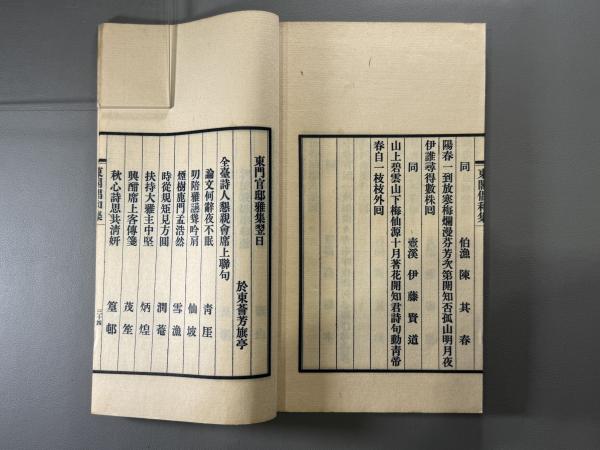 同
伯漁 陳其春
陽春一到放寒梅爛漫芬芳次第開知否孤山明月夜
伊誰尋得數株回
同
壺溪 伊藤賢道
山上碧雲山下梅仙源十月著花開知君詩句動青帝
春自一枝枝外回
東閣倡和集
東門官邸雅集翌日
於東薈芳旗亭
全臺詩人懇親會席上聯句
論文何辭夜不眠 青厓
叨陪雅讌聳吟肩 仙坡
煙樹鹿門孟浩然 雪漁
時從規矩見方圓 潤菴
扶持大雅主中堅 炳煌
興酣席上客傳箋 茂笙
秋心詩思共清妍 篁邨
東閣倡和集
二十四